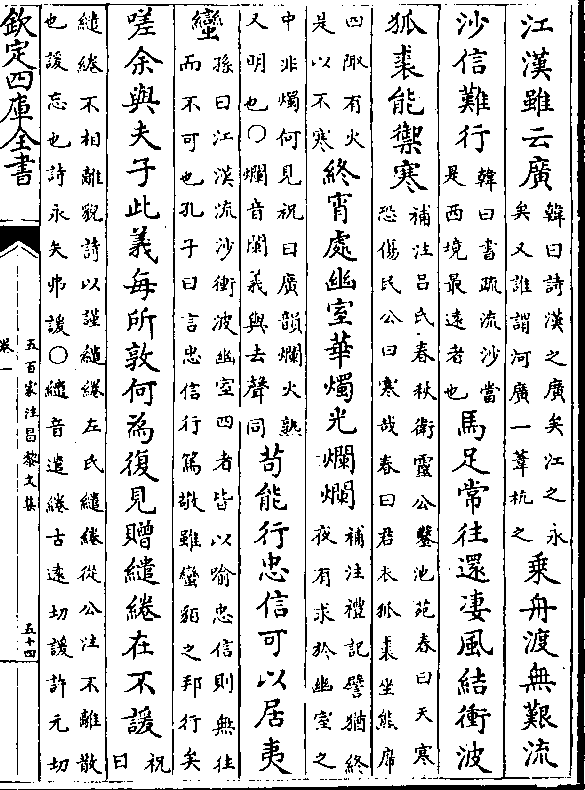 江漢雖云廣韓曰詩漢之廣矣江之永矣又誰謂河廣一葦杭之乘舟渡無艱流
沙信難行韓曰書疏流沙當是西境最遠者也馬足常往還淒風結衝波
狐裘能禦寒補注吕氏春秋衛靈公鑿池苑春曰天寒恐傷民公曰寒哉春曰君衣狐裘坐熊席
四陬有火是以不寒終宵處幽室華燭光爛爛補注禮記譬猶終夜有求於幽室之
中非燭何見祝曰廣韻爛火熟又明也○爛音闌義與去聲同苟能行忠信可以居夷
蠻孫曰江漢流沙衝波幽室四者皆以喻忠信則無往而不可也孔子曰言忠信行篤敬雖蠻貊之邦行矣
嗟余與夫子此義每所敦何為復見贈繾綣在不諼祝曰
繾綣不相離貌詩以謹繾綣左氏繾綣從公注不離散也諼忘也詩永矢弗諼○繾音遣綣古遠切諼許元切
欽定四庫全書
五百家注昌黎文集
卷一
五十四